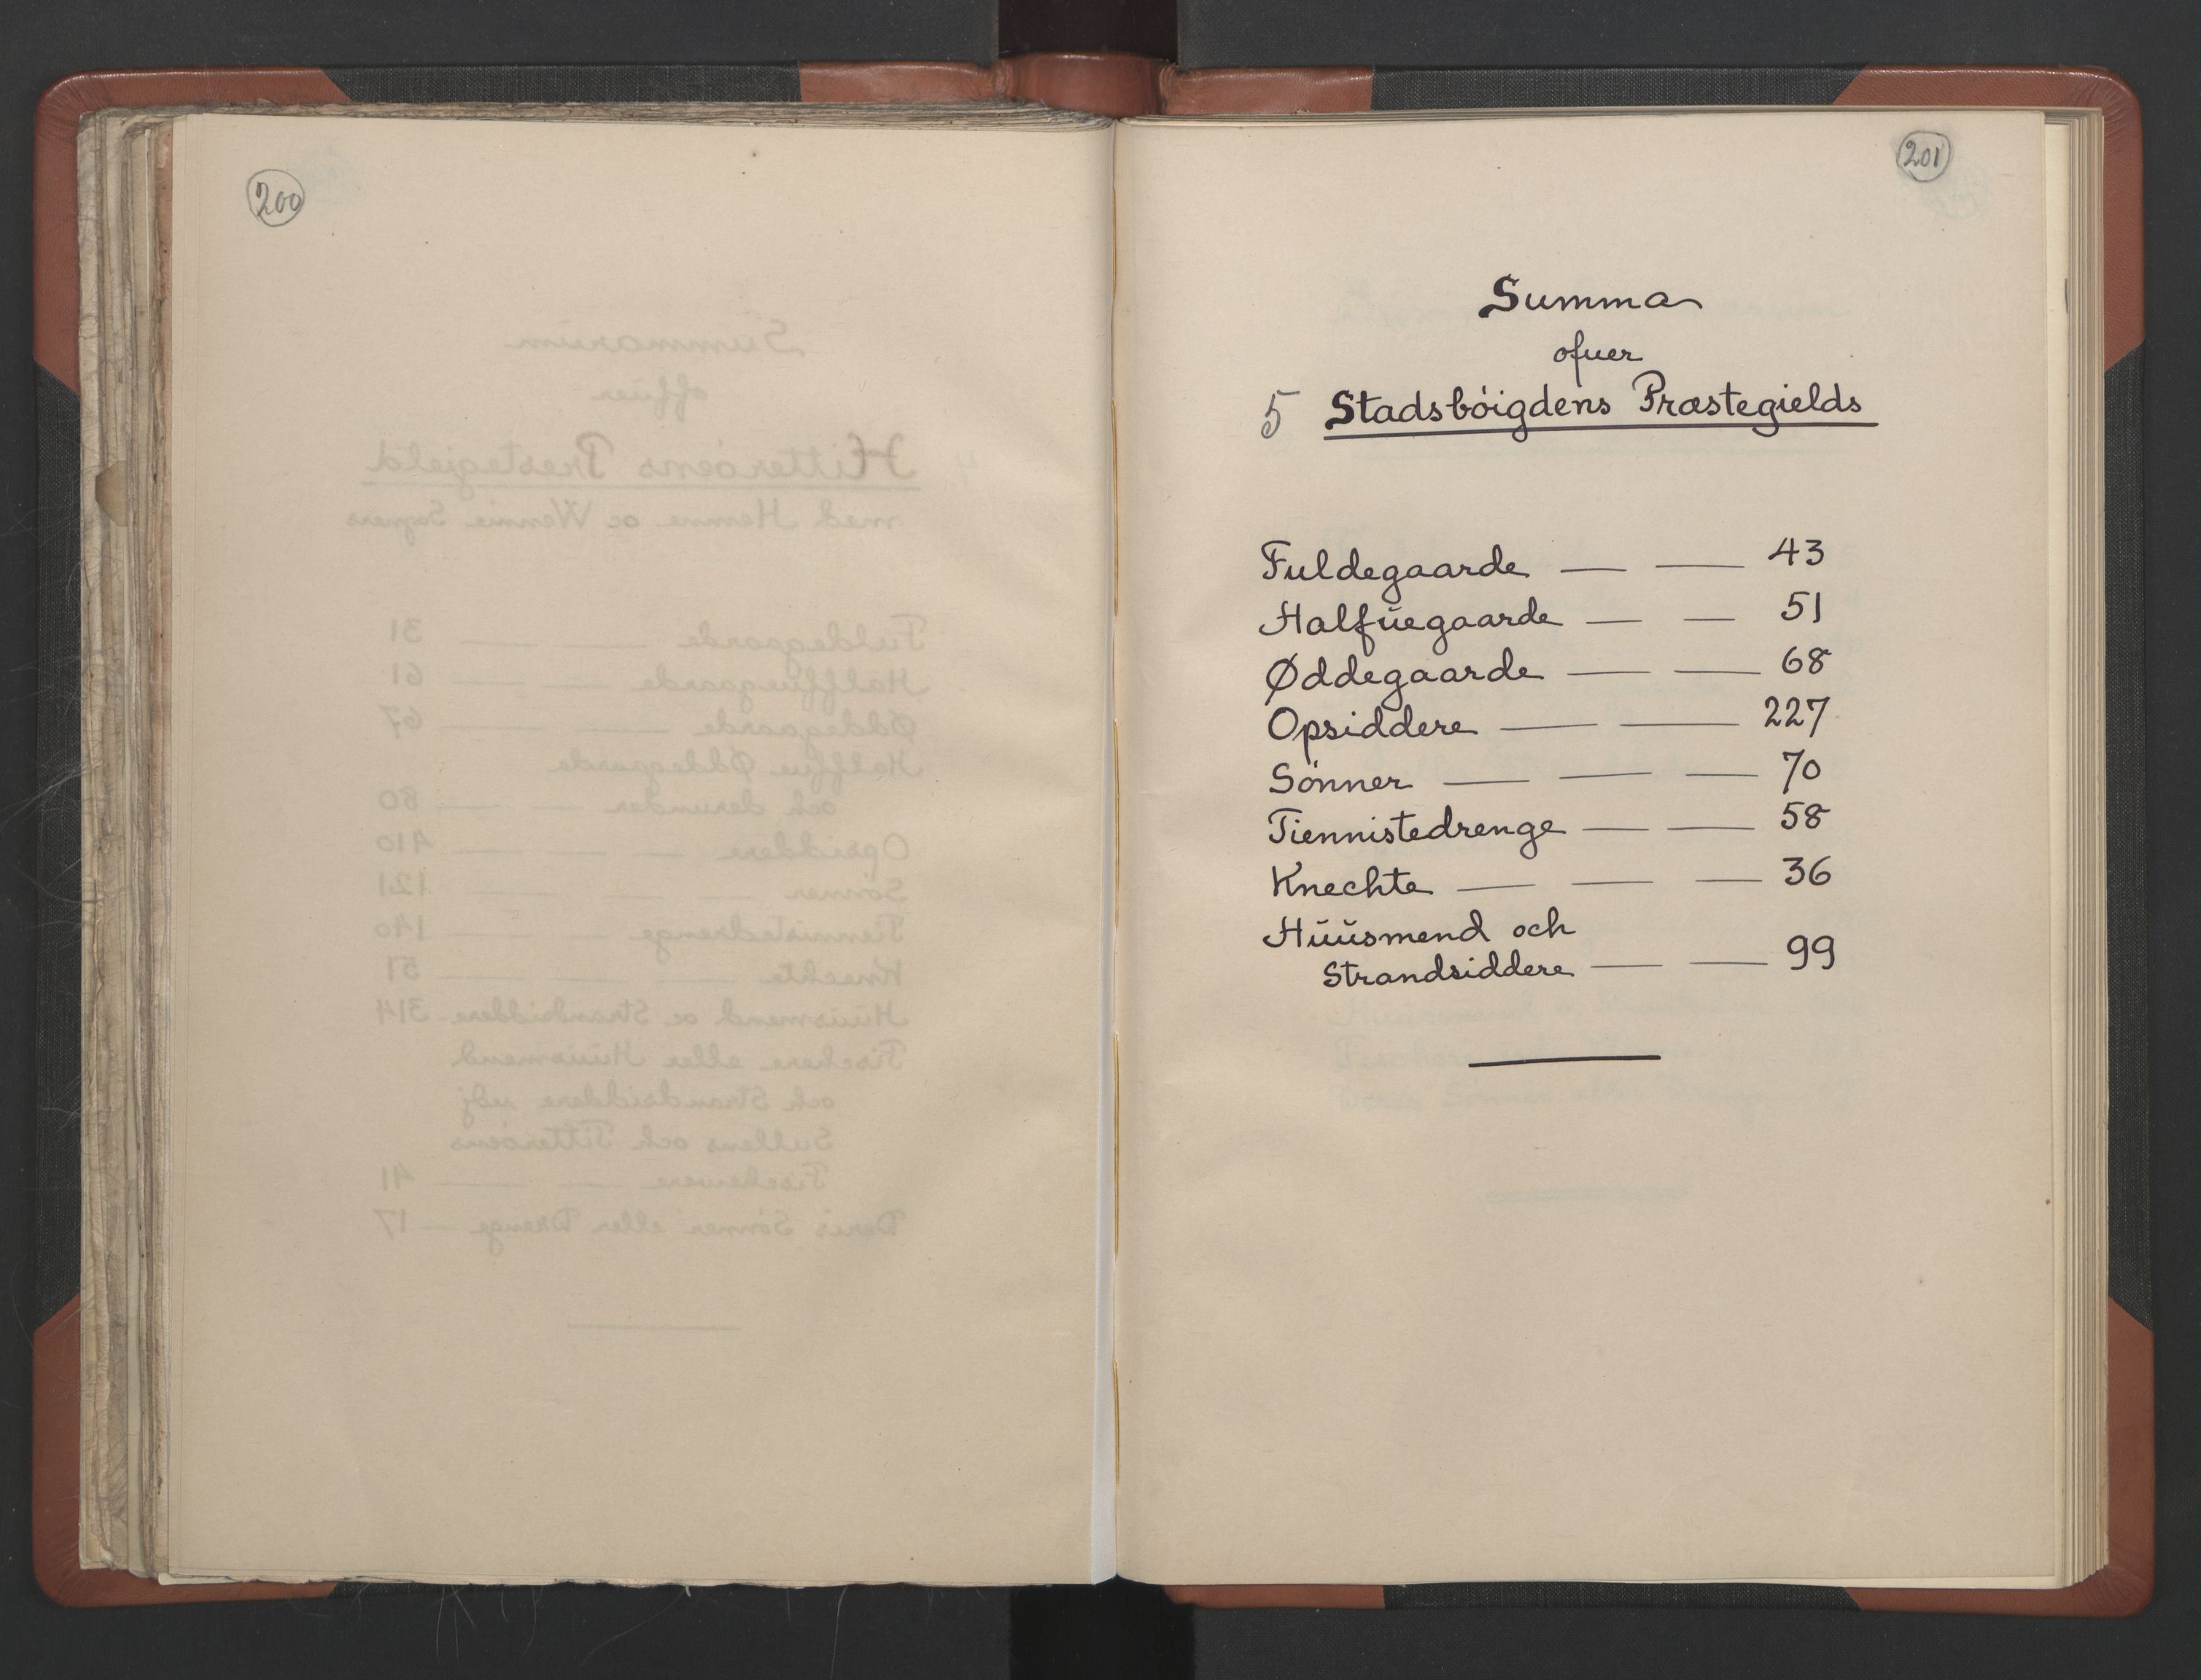 200
201
Summa
ofuer
5 Stadsbóigdens Præstegields
Fuldegaarde — — 43
Halfŭegaarde — — 51
Øddegaarde — — 68
Opsiddere — — 227
Sónner — — — 70
Tiennistedrenge — — 58
Knechte — — — 36
Húúsmend och
Strandsiddere — — 99